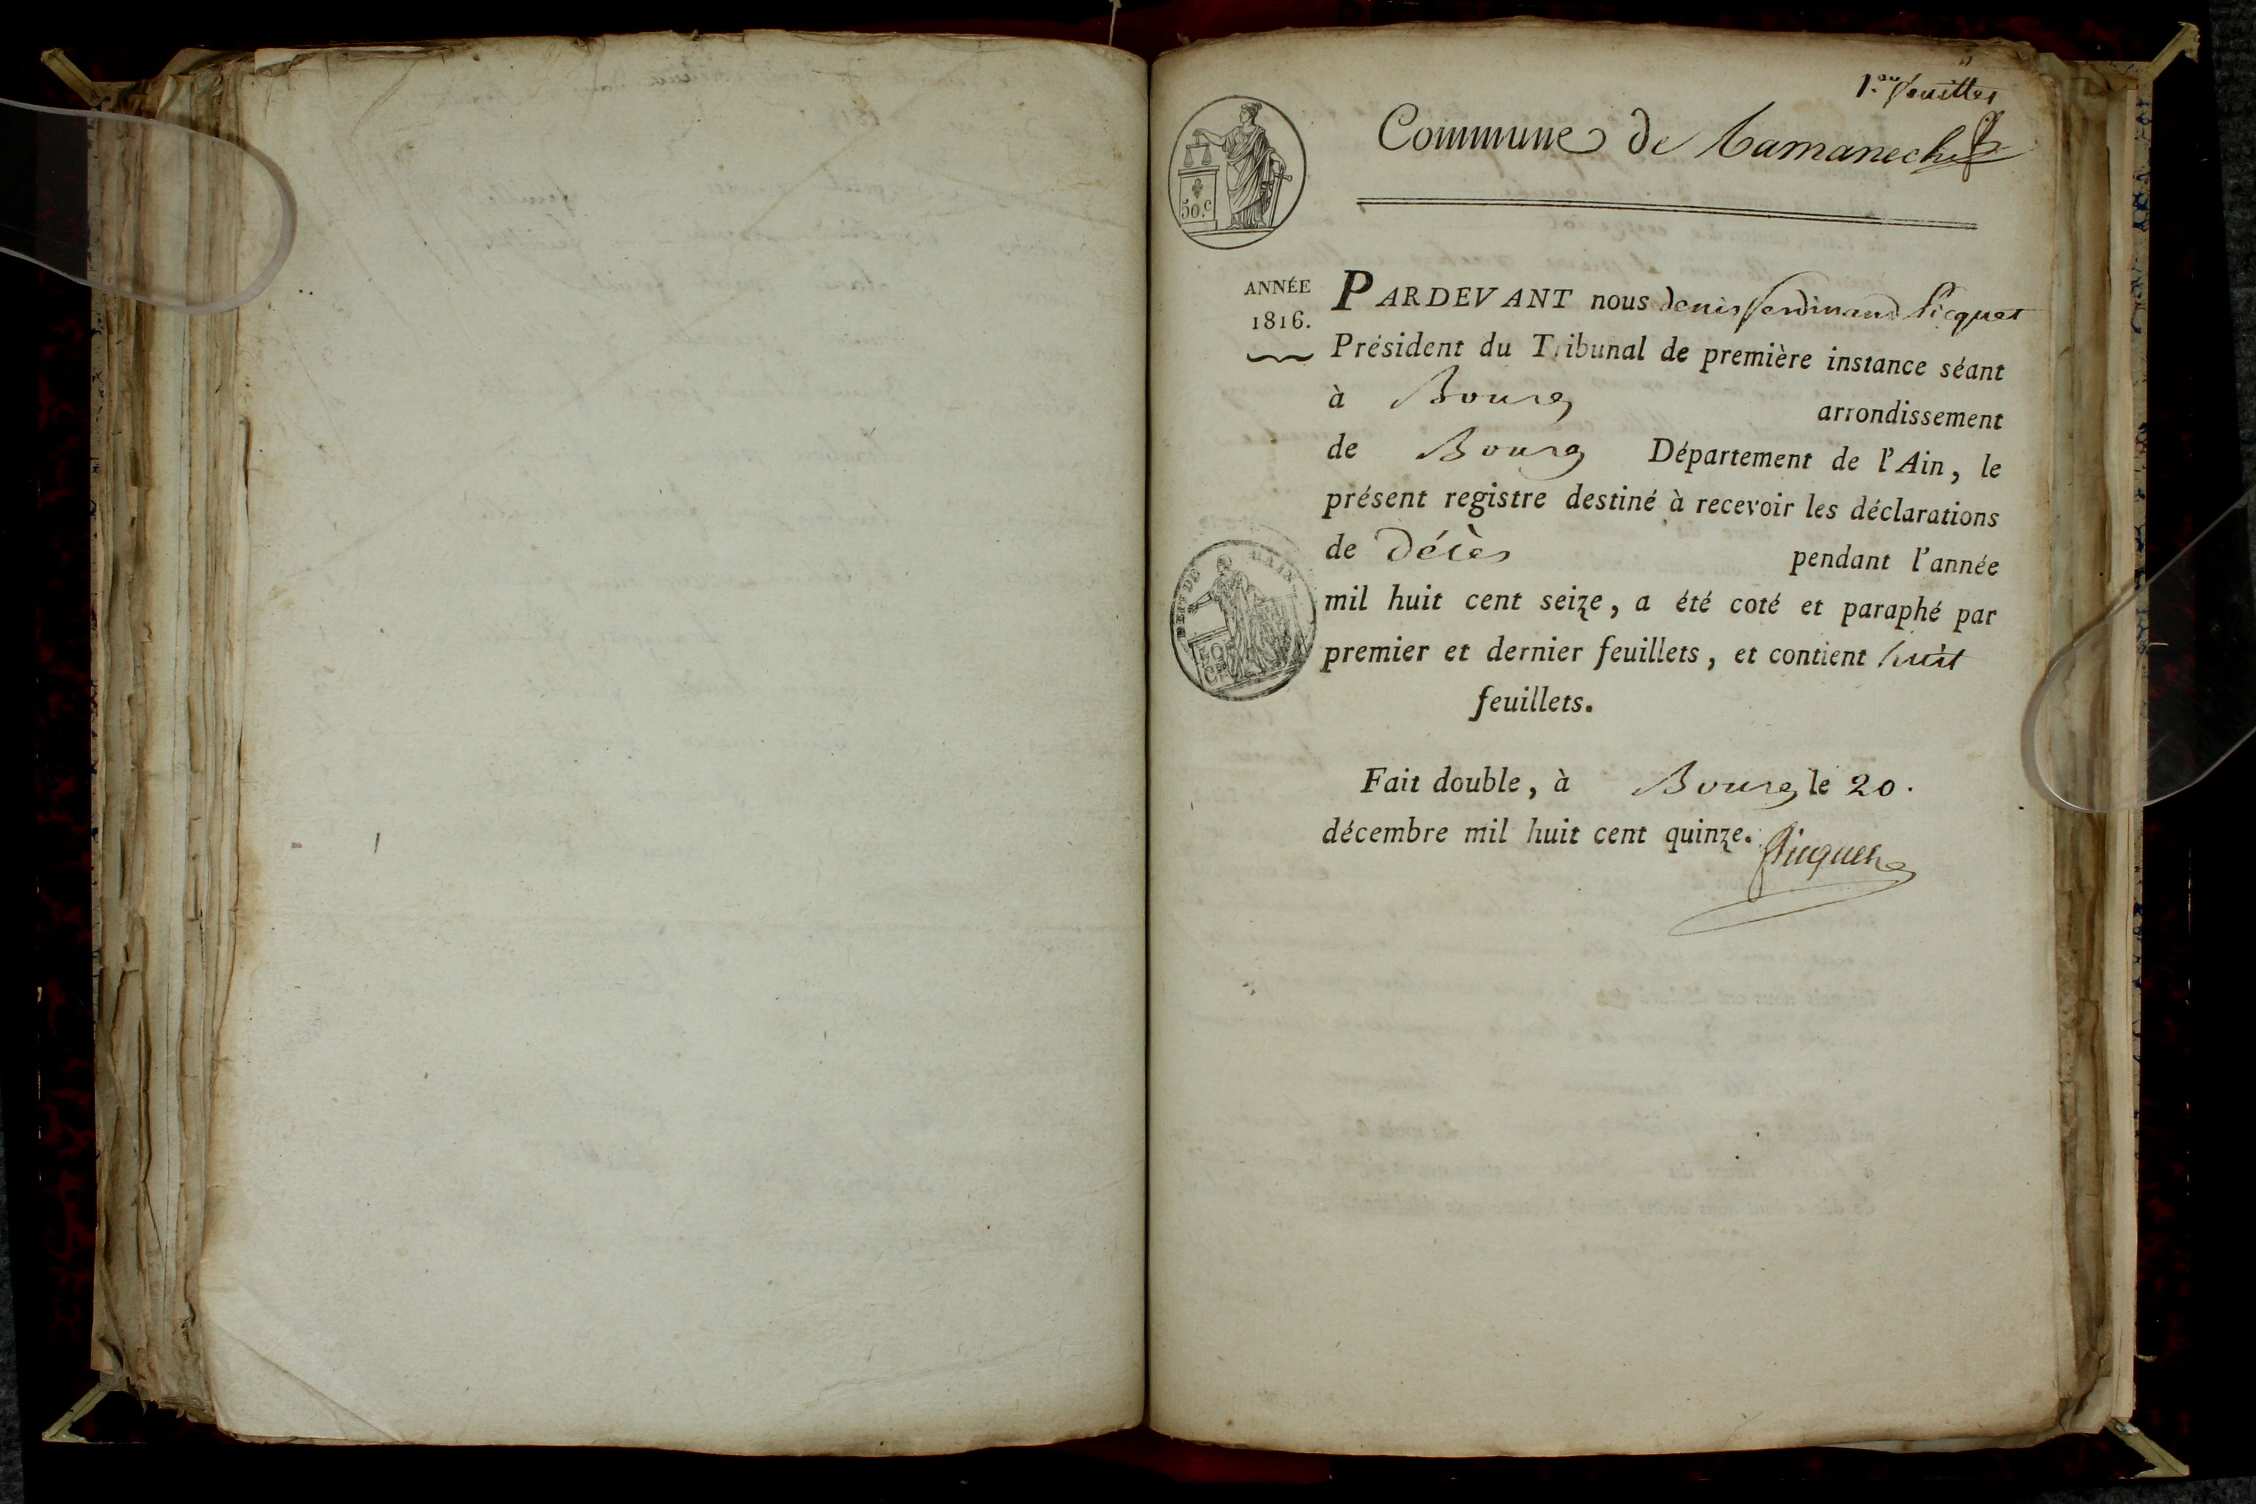 1.er feuillet
Commune de Ramanech
50.c
ANNÉE
1816.
PARDEVANT nous denis ferdinand Picquet
Président du Tribunal de première instance séant
à Bourg arrondissement
de Bourg Département de l'Ain, le
présent registre destiné à recevoir les déclarations
de Décès pendant l'année
mil huit cent seize, a été coté et paraphé par
premier et dernier feuillets, et contient huit
feuillets.
Fait double, à Bourg le 20.
décembre mil huit cent quinze.
Picquet